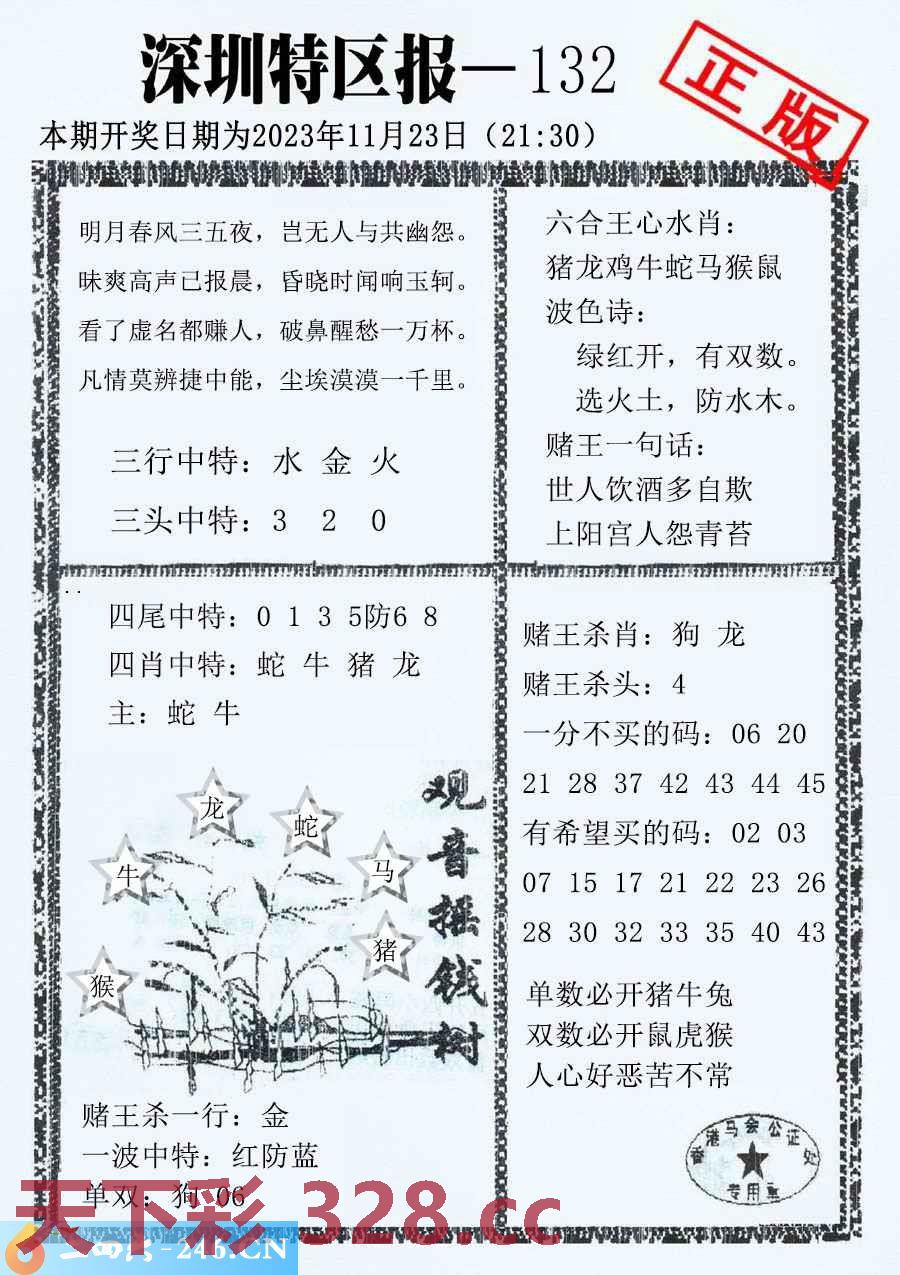 深圳特区报—132
正版
本期开奖日期为2023年11月23日（21:30）
明月春风三五夜，岂无人与共幽怨。
昧爽高声已报晨，昏晓时闻响玉轲。
看了虚名都赚人，破鼻醒愁一万杯。
凡情莫辨捷中能，尘埃漠漠一千里。
三行中特：水 金 火
三头中特：3 2 0
六合王心水肖：
猪龙鸡牛蛇马猴鼠
波色诗：
绿红开，有双数。
选火土，防水木。
赌王一句话：
世人饮酒多自欺
上阳宫人怨青苔
四尾中特：0 1 3 5防6 8
四肖中特：蛇 牛 猪 龙
主：蛇 牛
龙
蛇
牛
马
猪
猴
观音摇钱树
赌王杀一行：金
一波中特：红防蓝
单双：狗 06
赌王杀肖：狗 龙
赌王杀头：4
一分不买的码：06 20
21 28 37 42 43 44 45
有希望买的码：02 03
07 15 17 21 22 23 26
28 30 32 33 35 40 43
单数必开猪牛兔
双数必开鼠虎猴
人心好恶苦不常
香港马会公证处
专用章
天下彩 328.cc
-246.CN